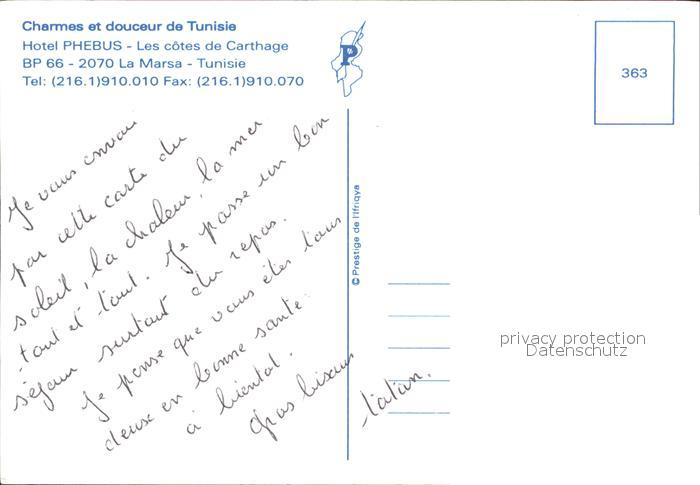 Charmes et douceur de Tunisie
Hotel PHEBUS - Les côtes de Carthage
BP 66 - 2070 La Marsa - Tunisie
Tel: (216.1)910.010 Fax: (216.1)910.070
P
363
© Prestige de l'Ifriqya
Je vous envoie
par cette carte du
soleil, la chaleur, la mer
tout et tout. Je passe un bon
séjour surtout du repos.
Je pense que vous êtes tous
deux en bonne santé.
à bientôt.
Gros bisous
tatan.
privacy protection
Datenschutz